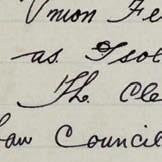 Union Fe
as Isol
Th. Cle
aw Council